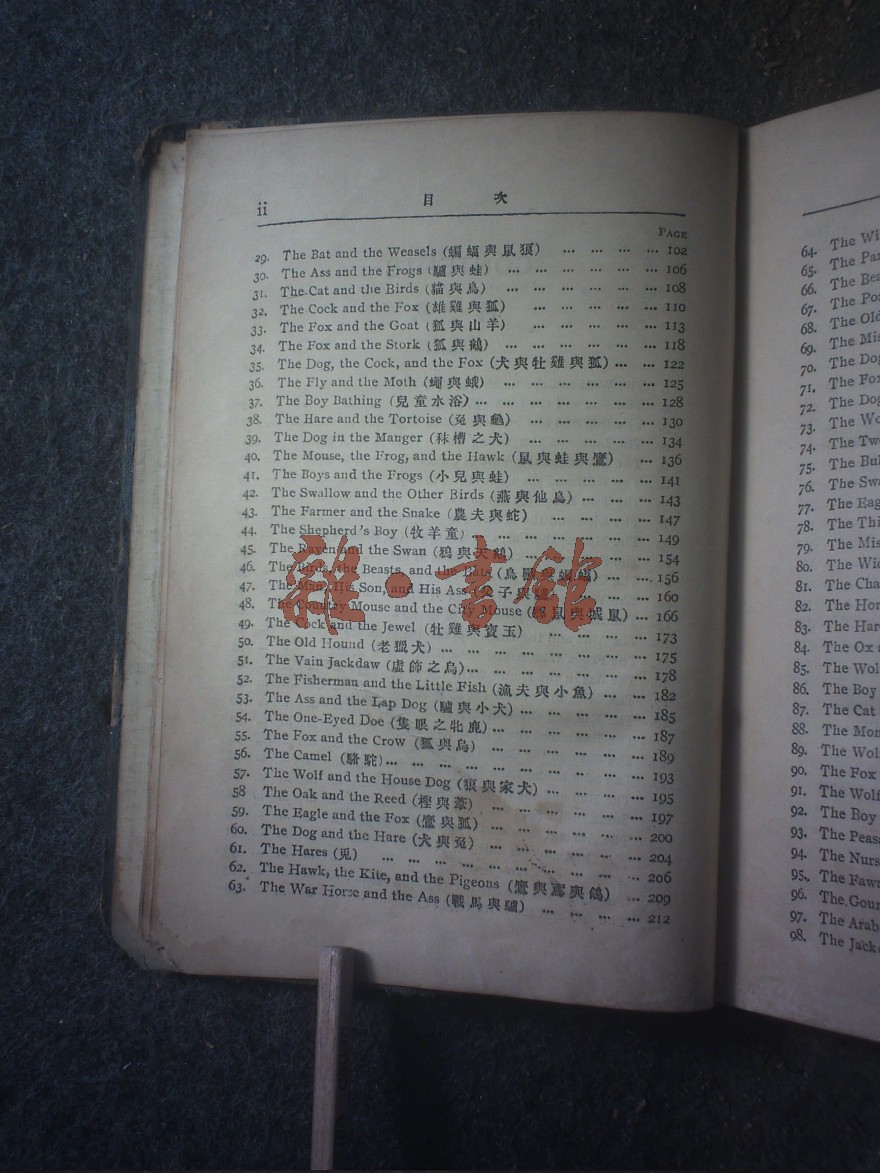 ii 目 次
PAGE
29. The Bat and the Weasels (蝙蝠與鼠狼) ... ... ... ... 102
30. The Ass and the Frogs (驢與蛙) ... ... ... ... ... 106
31. The Cat and the Birds (貓與鳥) ... ... ... ... ... 108
32. The Cock and the Fox (雄雞與狐) ... ... ... ... 110
33. The Fox and the Goat (狐與山羊) ... ... ... ... 113
34. The Fox and the Stork (狐與鶴) ... ... ... ... ... 118
35. The Dog, the Cock, and the Fox (犬與牡雞與狐) ... ... 122
36. The Fly and the Moth (蠅與蛾) ... ... ... ... ... 125
37. The Boy Bathing (兒童水浴) ... ... ... ... ... ... 128
38. The Hare and the Tortoise (兔與龜) ... ... ... ... ... 130
39. The Dog in the Manger (秣槽之犬) ... ... ... ... 134
40. The Mouse, the Frog, and the Hawk (鼠與蛙與鷹) ... 136
41. The Boys and the Frogs (小兒與蛙) ... ... ... ... 141
42. The Swallow and the Other Birds (燕與他鳥) ... ... ... 143
43. The Farmer and the Snake (農夫與蛇) ... ... ... ... 147
44. The Shepherd's Boy (牧羊童) ... ... ... ... ... 149
45. The Raven and the Swan (鴉與天鵝) ... ... ... ... 154
46. The Birds, the Beasts, and the Bats (鳥獸與蝙蝠) ... ... 156
47. The Man, His Son, and His Ass (父子與驢) ... ... ... 160
48. The Country Mouse and the City Mouse (鼠與城鼠) ... 166
49. The Cock and the Jewel (牡雞與寶玉) ... ... ... ... 173
50. The Old Hound (老獵犬) ... ... ... ... ... ... ... 175
51. The Vain Jackdaw (虛飾之烏) ... ... ... ... ... ... 178
52. The Fisherman and the Little Fish (漁夫與小魚) ... ... 182
53. The Ass and the Lap Dog (驢與小犬) ... ... ... ... 185
54. The One-Eyed Doe (隻眼之牝鹿) ... ... ... ... ... 187
55. The Fox and the Crow (狐與烏) ... ... ... ... ... 189
56. The Camel (駱駝) ... ... ... ... ... ... ... ... 193
57. The Wolf and the House Dog (狼與家犬) ... ... ... ... 195
58 The Oak and the Reed (樫與葦) ... ... ... ... ... 197
59. The Eagle and the Fox (鷹與狐) ... ... ... ... ... 200
60. The Dog and the Hare (犬與兔) ... ... ... ... ... 204
61. The Hares (兎) ... ... ... ... ... ... ... ... 206
62. The Hawk, the Kite, and the Pigeons (鷹與鳶與鴿) ... 209
63. The War Horse and the Ass (戰馬與驢) ... ... ... ... 212
雜·書館
64. The Wi
65. The Par
66. The Bea
67. The Po
68. The Old
69. The Mis
70. The Dog
71. The Fox
72. The Dog
73. The Wo
74. The Two
75. The Bul
76. The Swa
77. The Eag
78. The Thi
79. The Mis
80. The Wid
81. The Cha
82. The Hor
83. The Har
84. The Ox a
85. The Wol
86. The Boy
87. The Cat
88. The Mon
89. The Wol
90. The Fox
91. The Wolf
92. The Boy
93. The Peas
94. The Nurs
95. The Fawn
96. The Gour
97. The Arab
98. The Jack